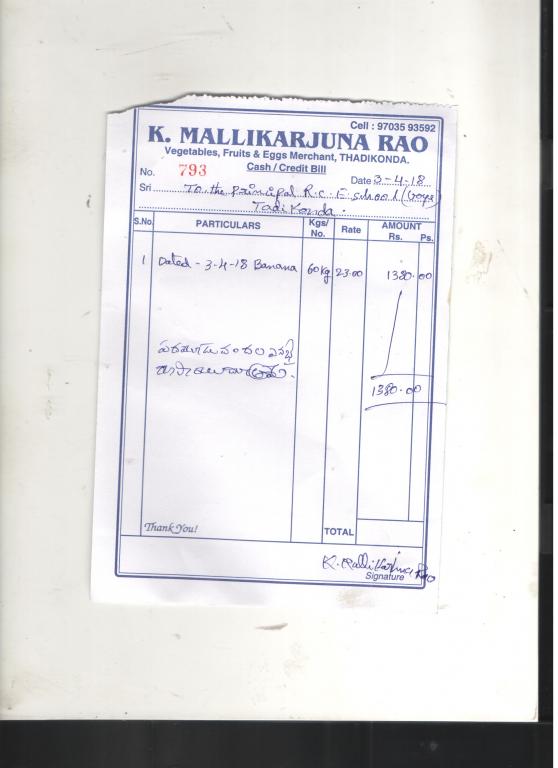 Cell : 97035 93592
K. MALLIKARJUNA RAO
Vegetables, Fruits & Eggs Merchant, THADIKONDA.
Cash / Credit Bill
No. 793 Date 3-4-18
Sri To the principal R.C.E school (boys)
Tadikonda.
S.No. PARTICULARS Kgs/ No. Rate AMOUNT Rs. Ps.
1 Dated - 3-4-18 Banana 60kg 23.00 1380.00
1380.00
Thank You! TOTAL
K. Mallikarjuna Rao
Signature